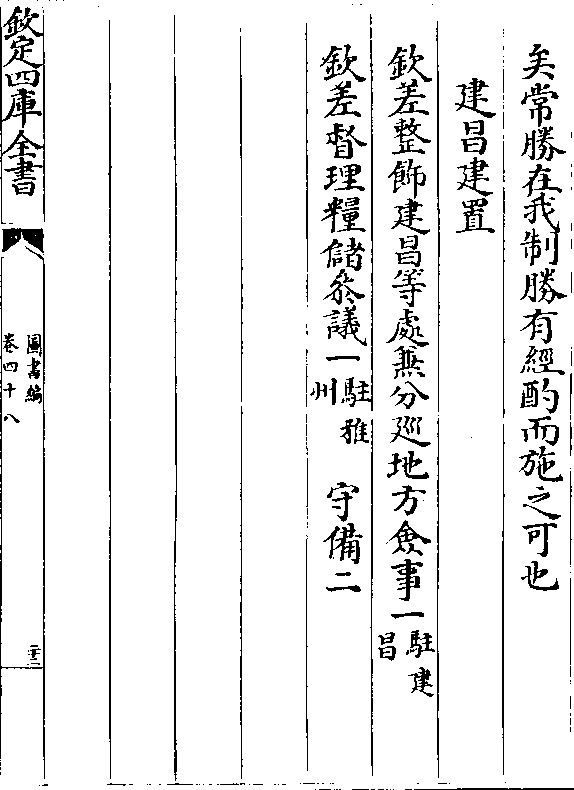 矣常勝在我制勝有經酌而施之可也
建昌建置
欽差整飾建昌等處兼分巡地方僉事一駐建昌
欽差督理糧儲參議一駐雅州 守備二
欽定四庫全書
圖書編
卷四十八
二十三